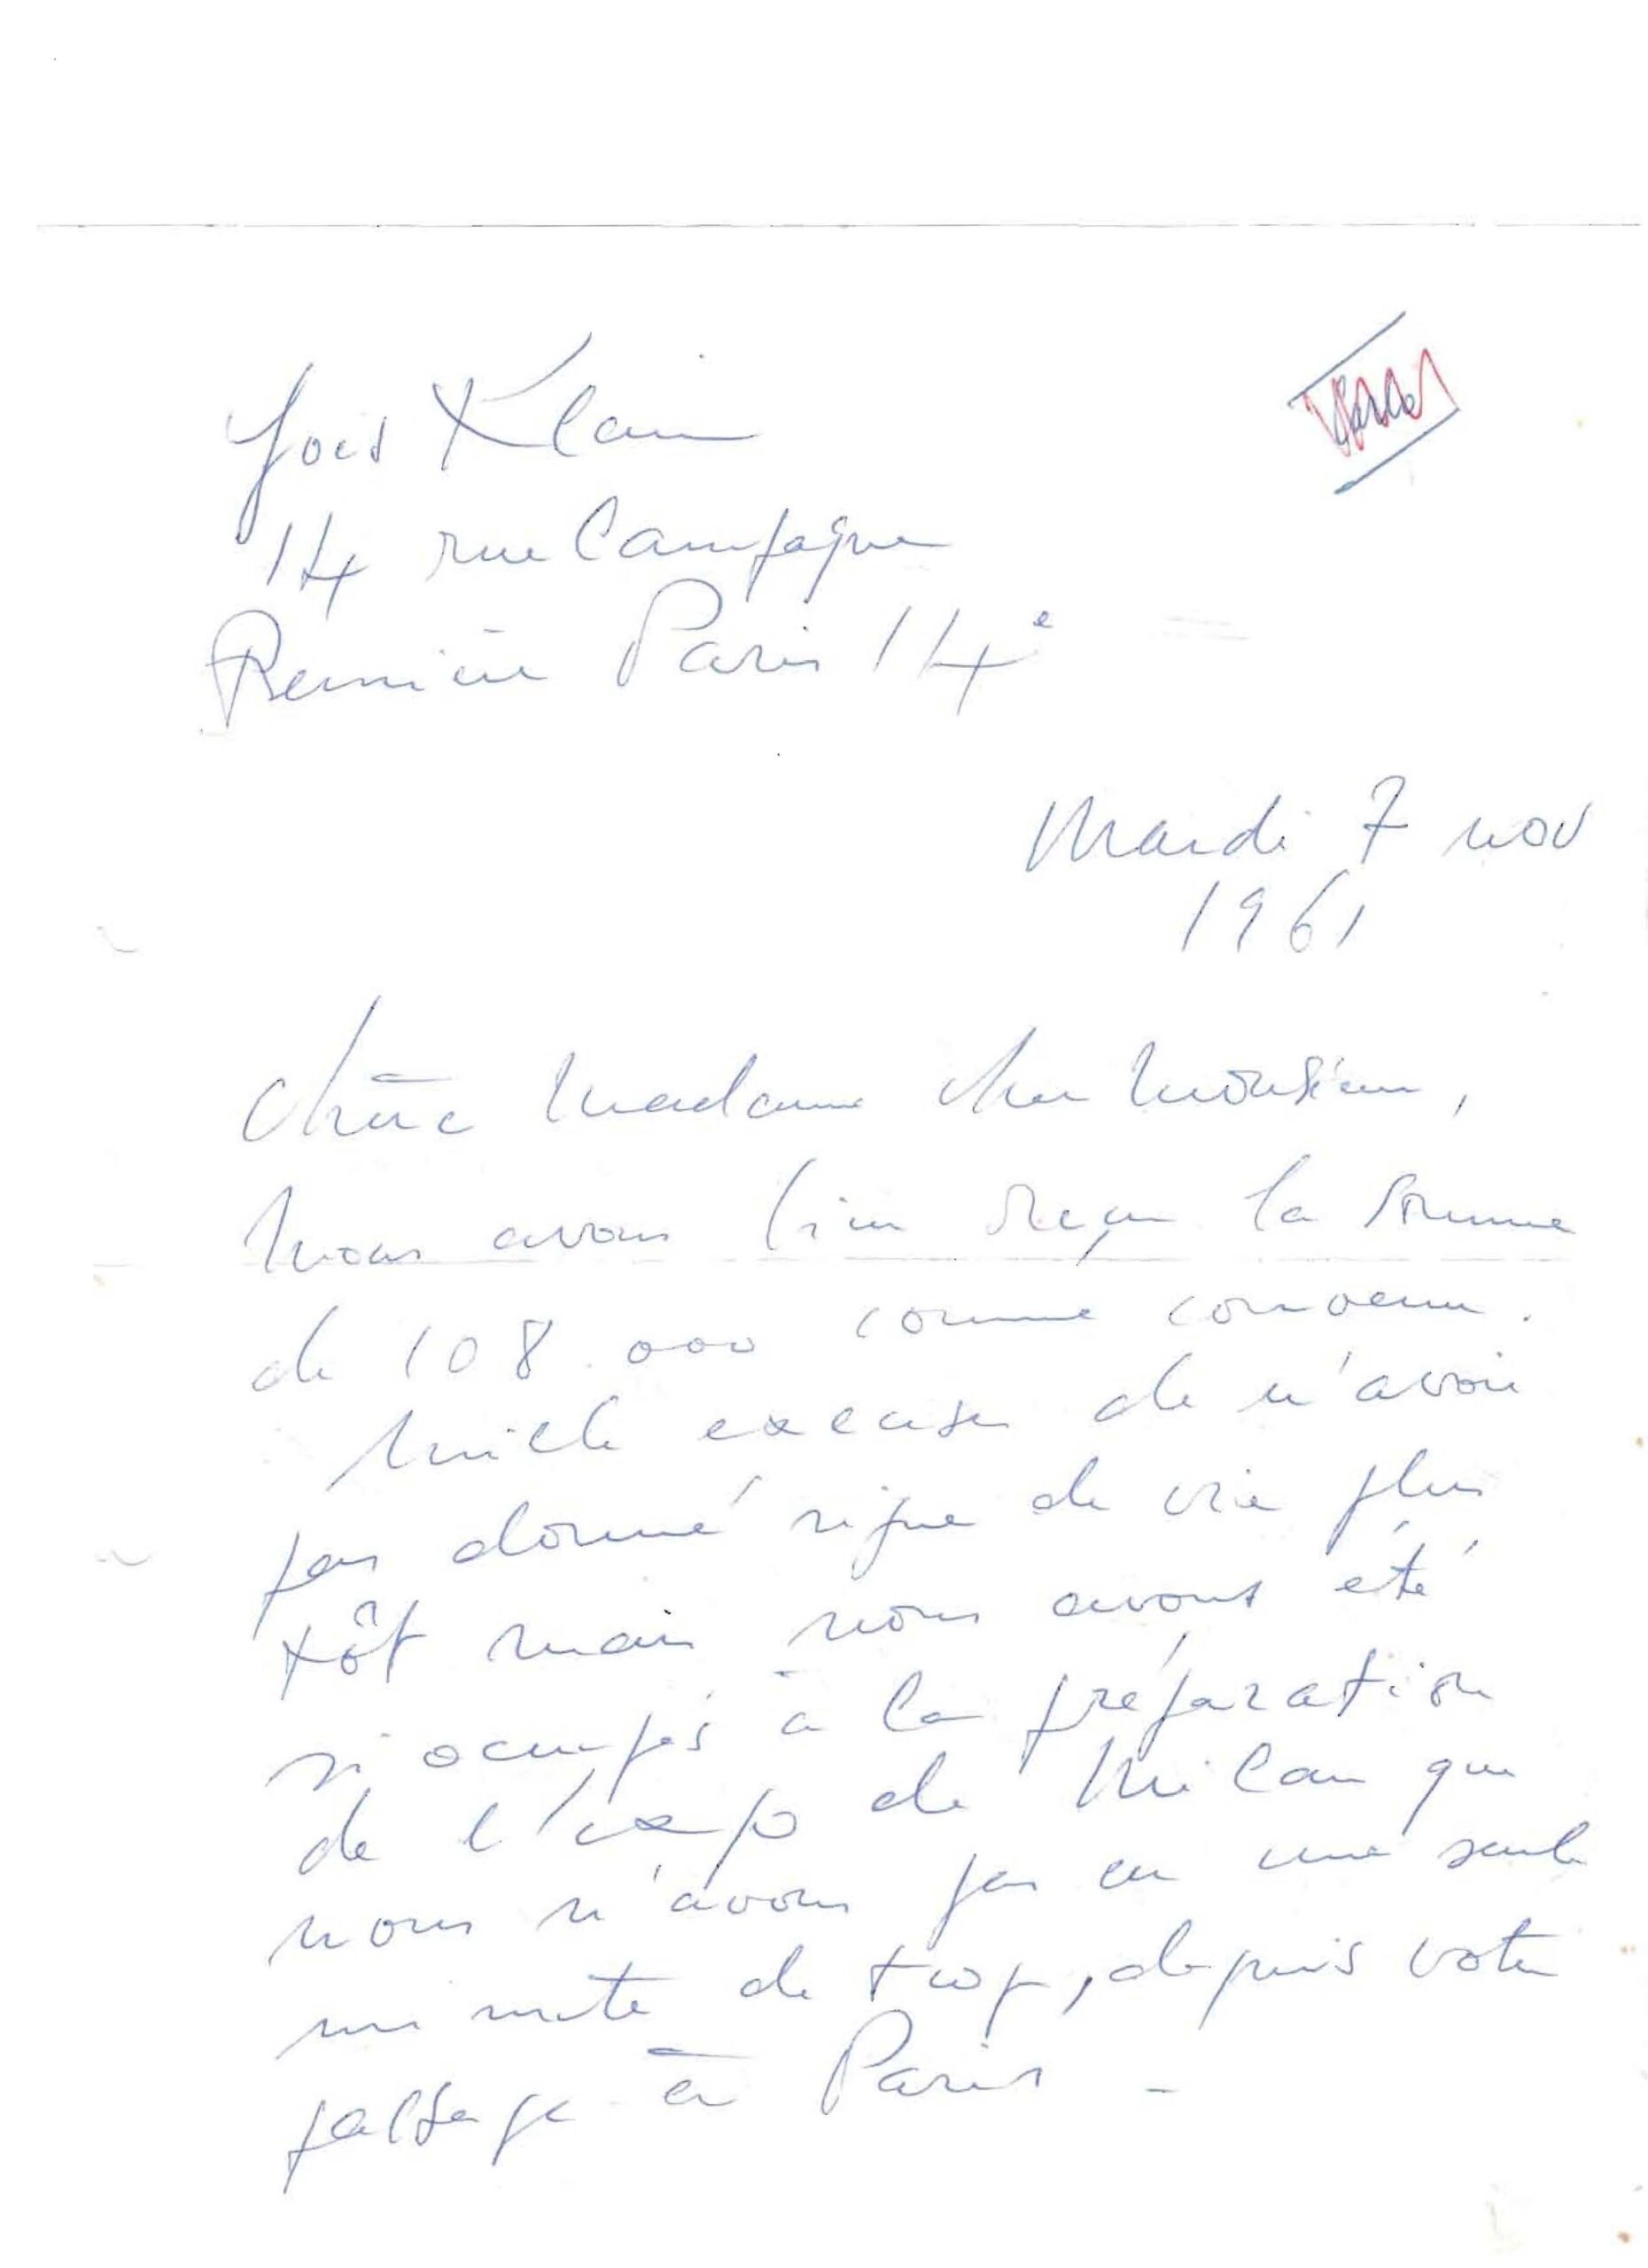 Yves Klein
14 rue Campagne
Première Paris 14e
Mardi 7 nov
1961
Chère Madame cher Monsieur,
Nous avons bien reçu la somme
de 108.000 comme convenu.
Mille excuses de n'avoir
pas donné signe de vie plus
tôt mais nous avons été
si ocupés à la préparation
de l'exp de Milan que
nous n'avons pas eu une seule
minute de trop, depuis votre
passage à Paris -